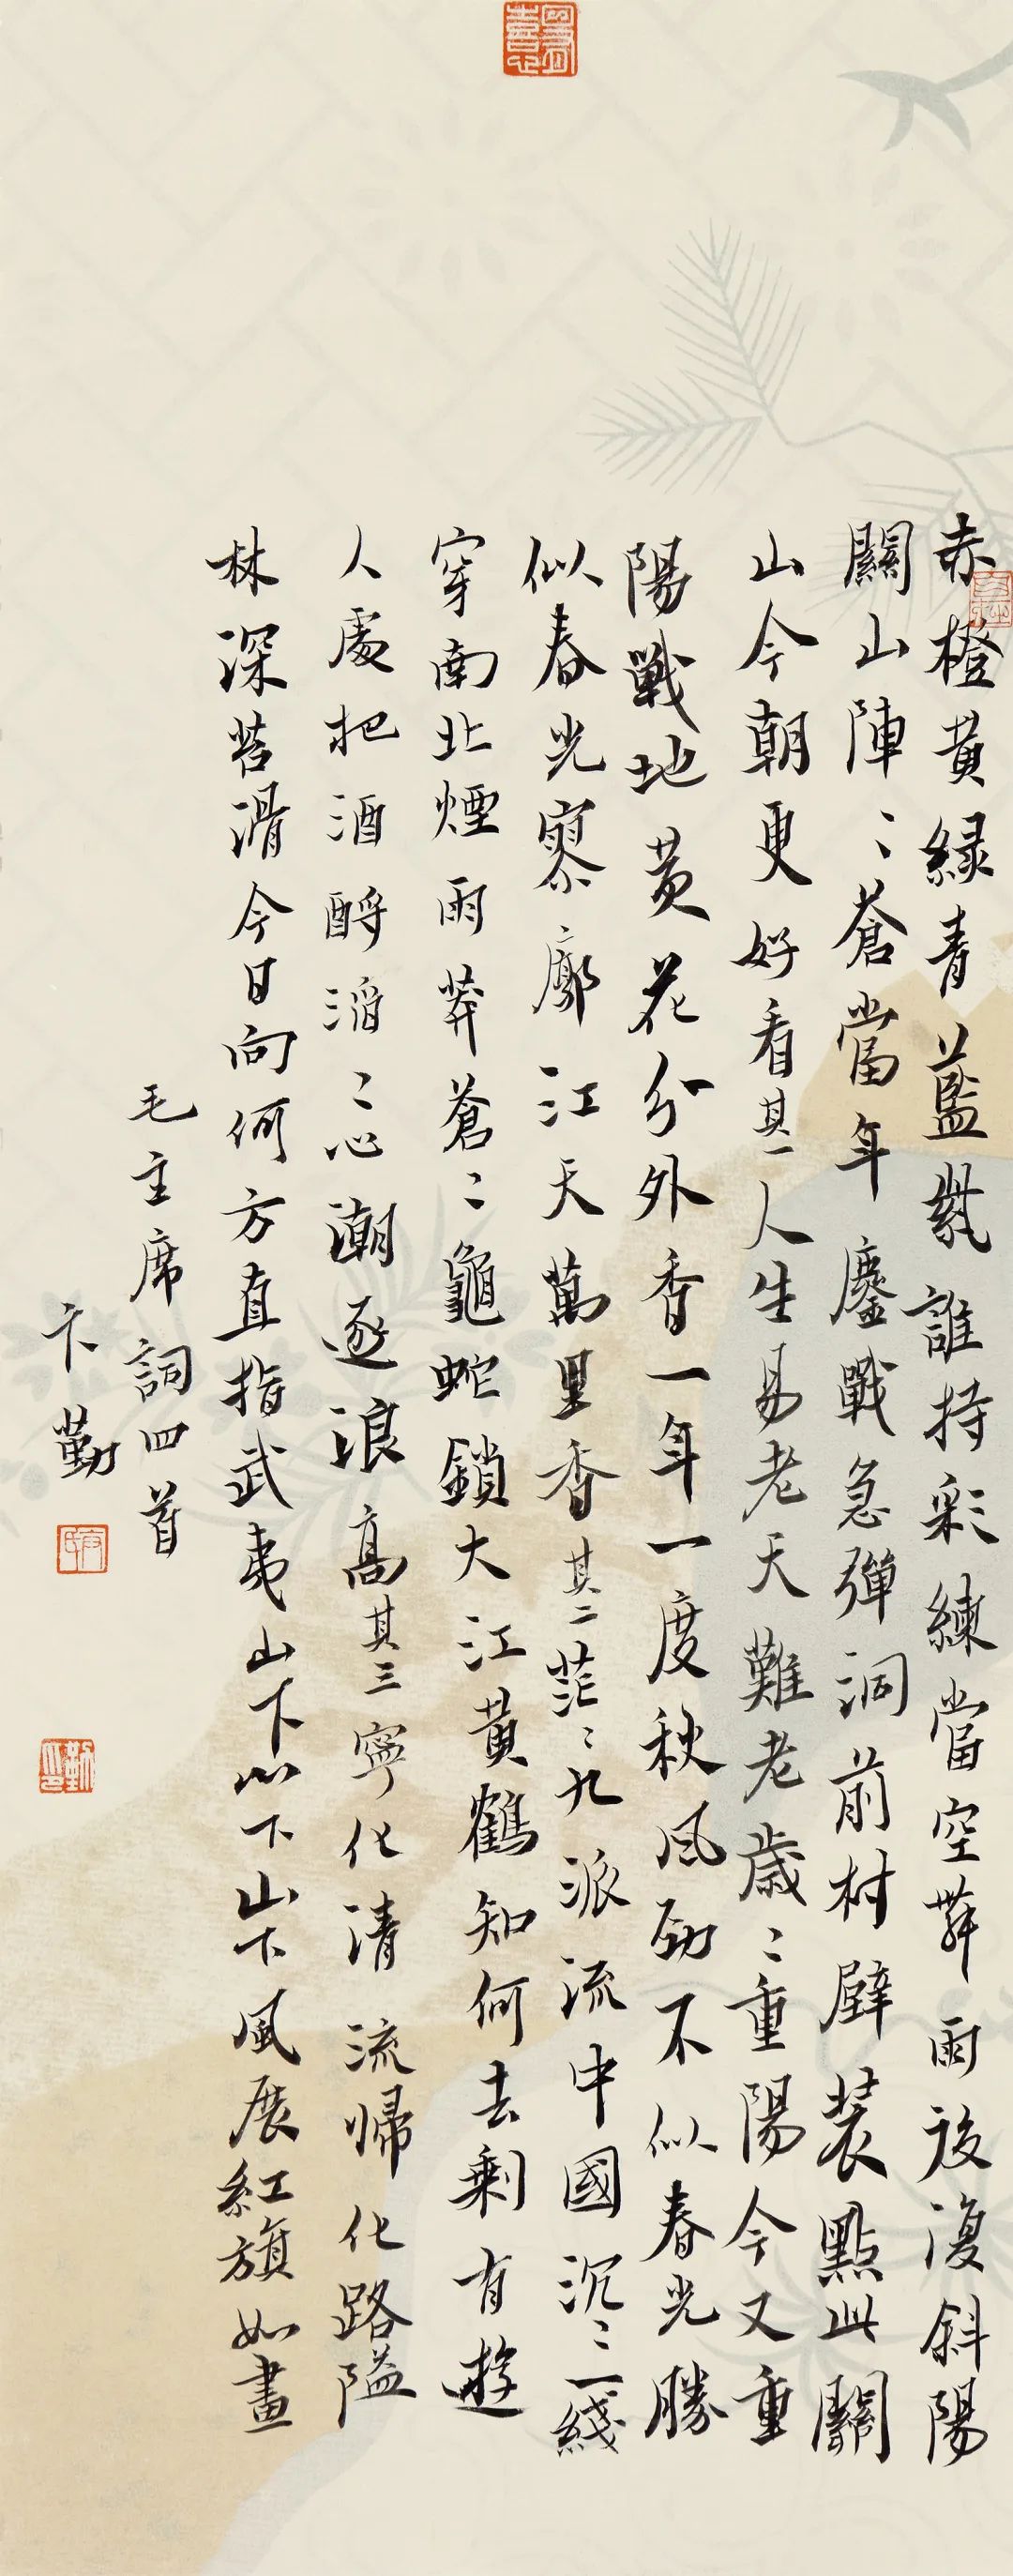 赤橙黃緑青藍紫誰持彩練當空舞雨後復斜陽
關山陣〻蒼當年鏖戰急彈洞前村壁装點此關
山今朝更好看其一人生易老天難老歲〻重陽今又重
陽戰地黃花分外香一年一度秋風劲不似春光勝
似春光寥廓江天萬里香其二茫〻九派流中國沉〻一綫
穿南北煙雨莽蒼〻龜蛇鎖大江黃鶴知何去剩有遊
人處把酒酹滔〻心潮逐浪高其三寧化清流歸化路隘
林深苔滑今日向何方直指武夷山下山下山下風展紅旗如畫
毛主席詞四首
卞勤